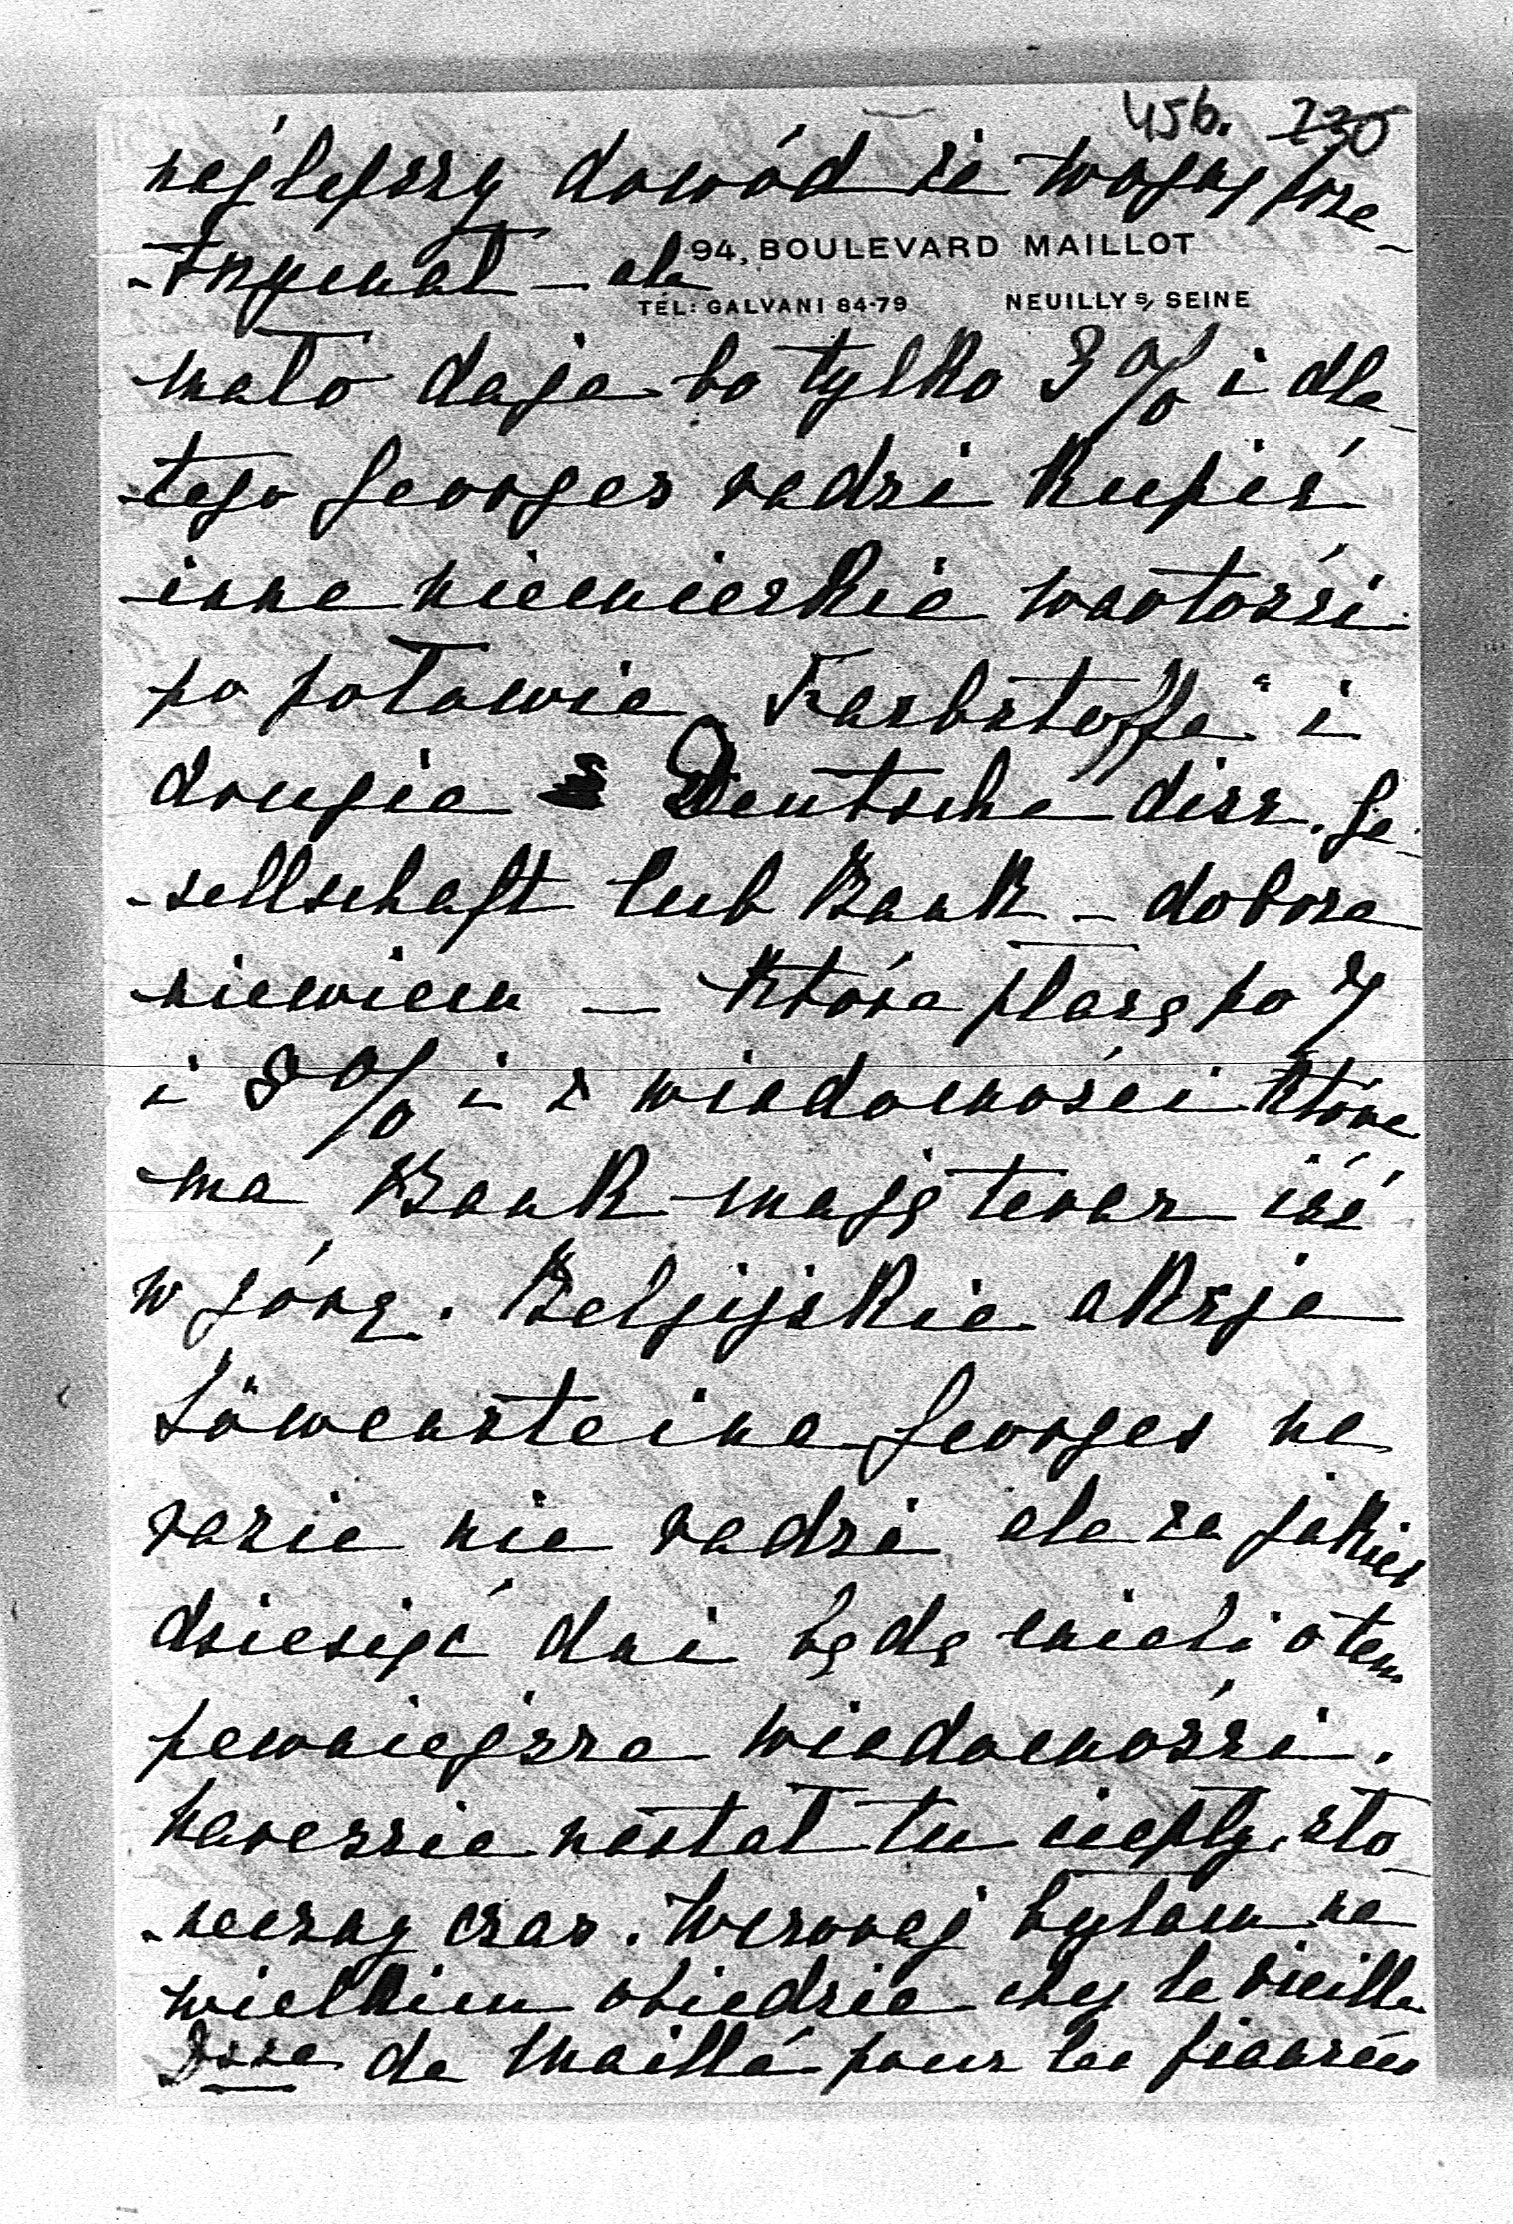 456. 230
najlepszy dowód że wojnę prze-
94, BOULEVARD MAILLOT
-trzymał – ale
TÉL: GALVANI 84-79 NEUILLY S/ SEINE
mało daje bo tylko 3% i dla-
tego Georges radzi kupić
inne niemieckie wartości
po połowie „Farbstoffe" i
drugie Deutsche disc. Ge-
-sellschaft lub Bank – dobrze
niewiem – które płacą po 7
i 8% i z wiadomości które
ma Bank mają teraz iść
w górę. Belgijskie akcje
Löwensteina Georges na
razie nie radzi ale za jakieś
dziesięć dni będą mieli o tem
pewniejsze wiadomości.
Nareszcie nastał tu ciepły, sło-
-neczny czas. Wczoraj byłam na
wielkim obiedzie chez la vieille
Dsse de Maillé pour les fiancés